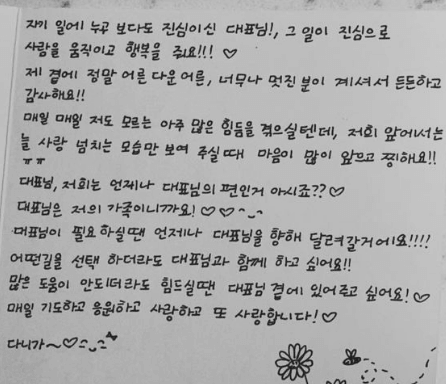 자기 일에 누구 보다도 진심이신 대표님!, 그 일이 진심으로
사람을 움직이고 행복을 줘요!!! ♡
제 곁에 정말 어른 다운 어른, 너무나 멋진 분이 계셔서 든든하고
감사해요!!
매일 매일 저도 모르는 아주 많은 힘듬을 겪으실텐데, 저희 앞에서는
늘 사랑 넘치는 모습만 보여 주실 때마다 마음이 많이 아프고 찡해요!!
ㅠㅠ
대표님, 저희는 언제나 대표님의 편인거 아시죠?? ♡
대표님은 저의 가족이니까요! ♡♡ ^_^
대표님이 필요하실땐 언제나 대표님을 향해 달려갈거에요!!!!
어떤길을 선택 하더라도 대표님과 함께 하고 싶어요!!
많은 도움이 안되더라도 힘드실땐 대표님 곁에 있어주고 싶어요! ♡
매일 기도하고 응원하고 사랑하고 또 사랑합니다! ♡
다니가~♡